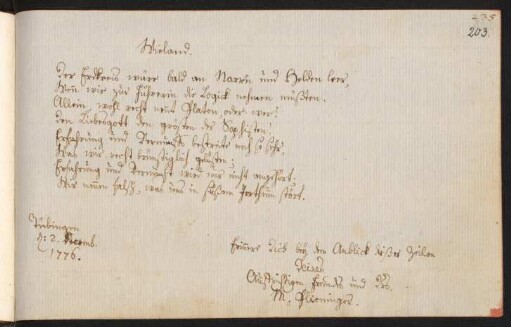 275
203.
Wieland.
Der Erdkreis wäre bald an Narrn und Helden leer,
Wenn wir zur Führerin die Logick nehmen müßten.
Allein, wohl recht nennt Platon, oder wer?
den Liebesgott den grösten der Sophisten!
Erfahrung und Vernunft bestreite noch so sehr,
Was wir recht brünstiglich gelüsten;
Erfahrung und Vernunft wird nur nicht angehört.
Wir nennen falsch, was uns in süßem Irrthum stört.
Tübingen
d. 2. Novemb.
1776.
Erinnre dich bey dem Anblick dieser Zeilen
Deines
Aufrichtigen Freundes und
M. Pfleininger.